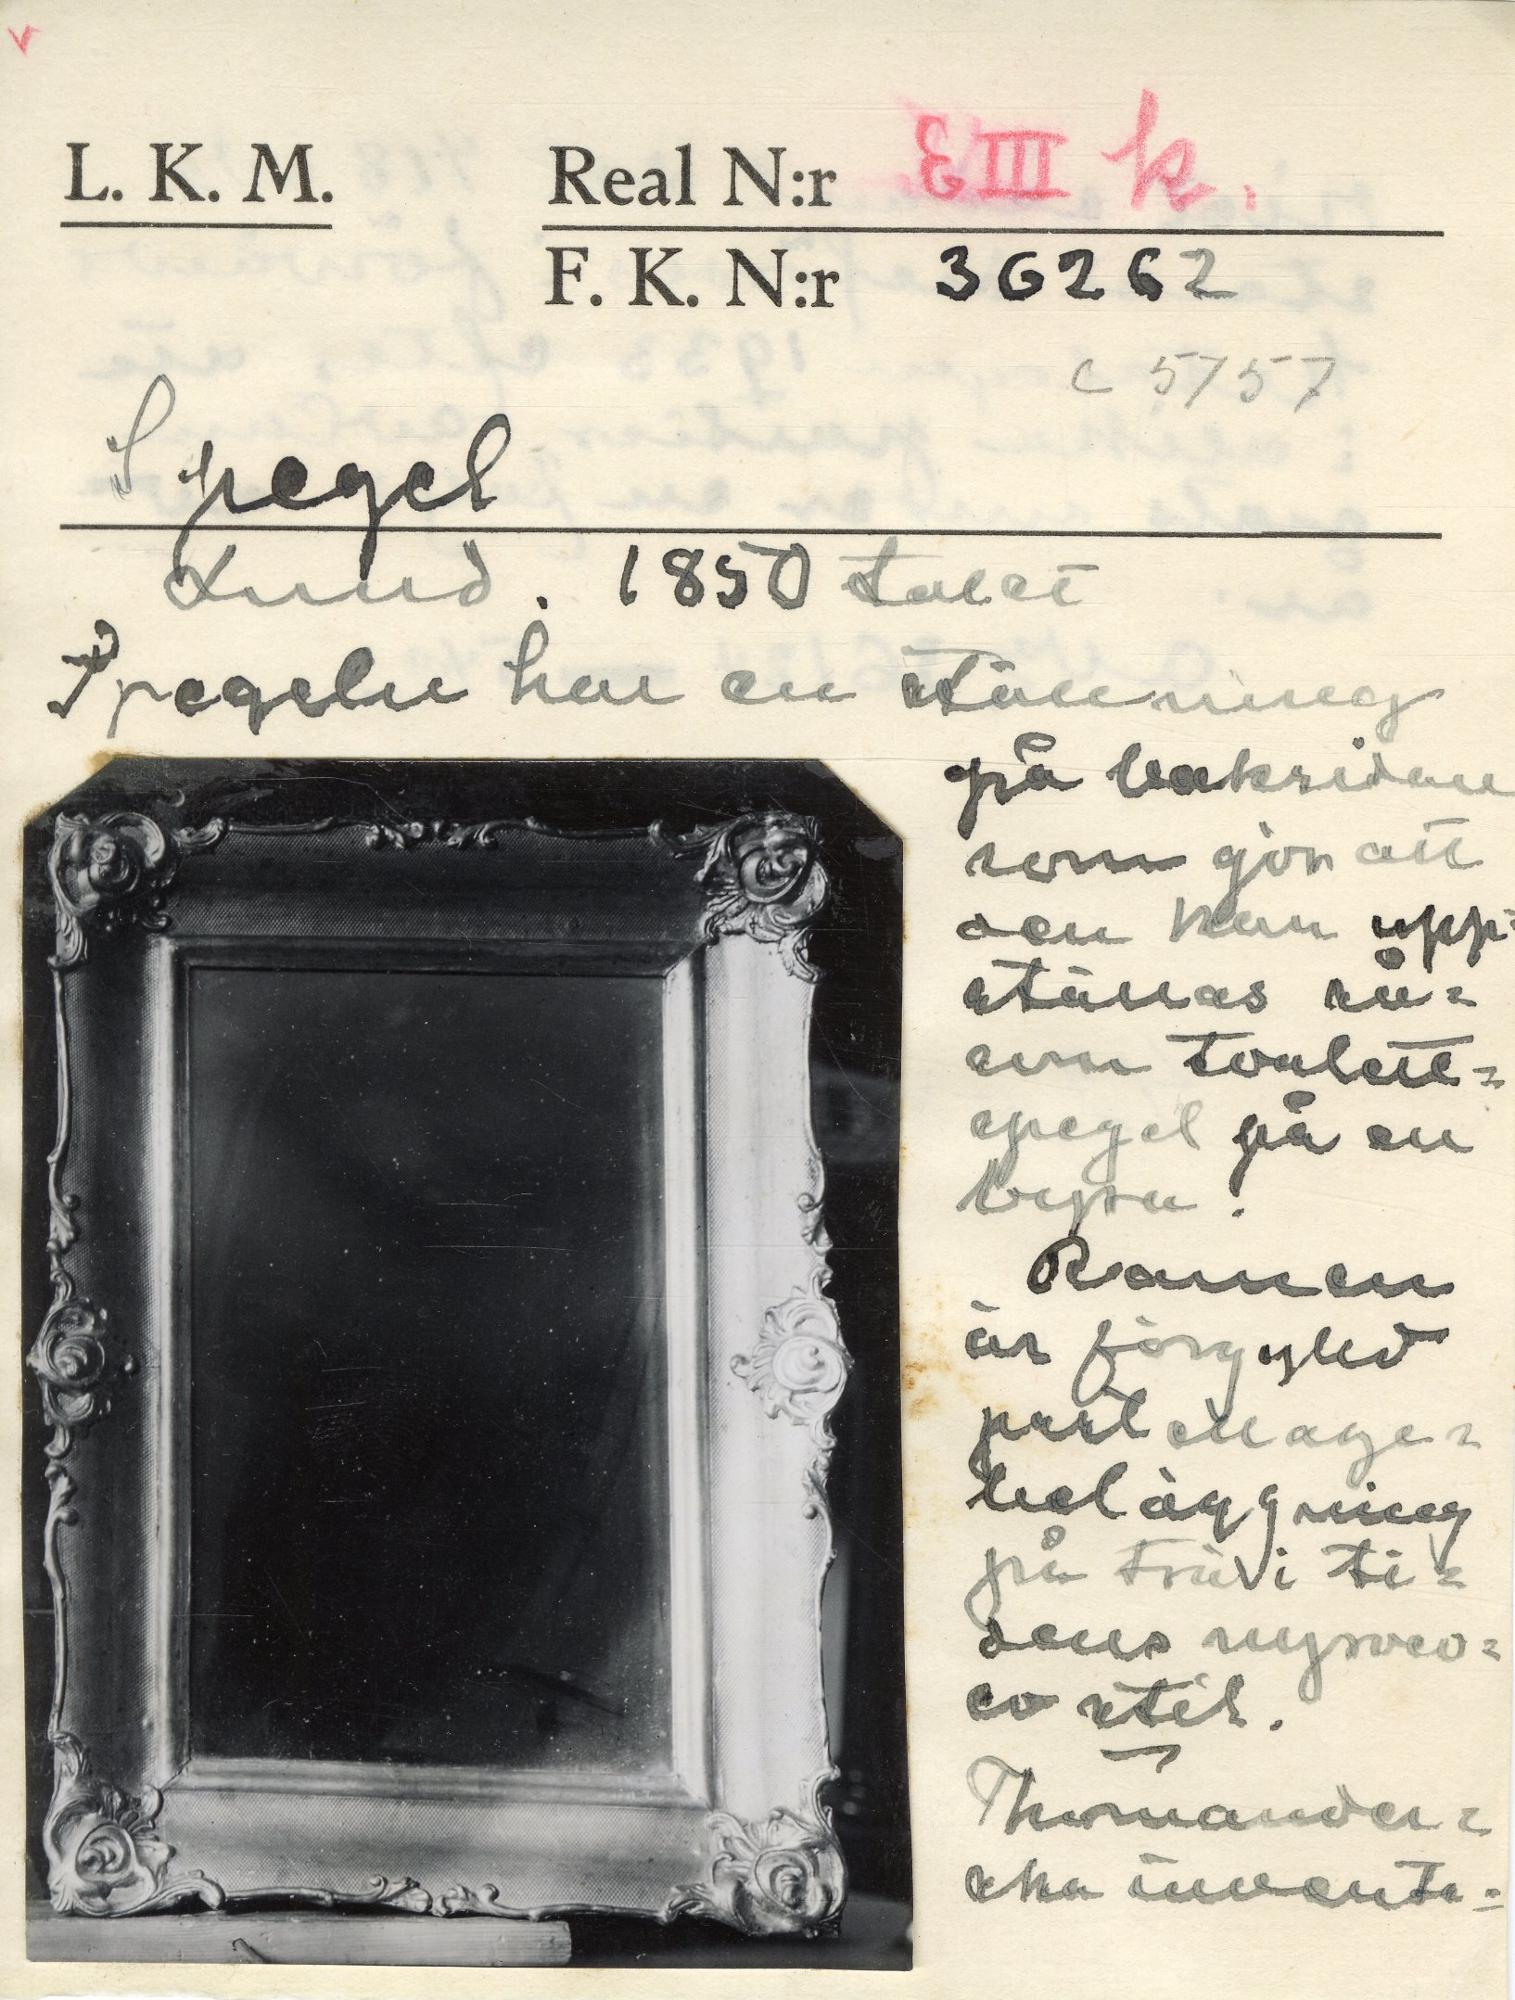 L. K. M. Real N:r E III k.
F. K. N:r 36262
C 5757
Spegel
Lund. 1850 talet
Spegeln har en ställning
på baksidan
som gör att
den kan upp-
ställas så-
som toalett-
spegel på en
byrå.
Ramen
är förgylld
pastellage-
beläggning
på trä i ti-
dens nyroco-
co stil.
Thomander-
ska inventa-